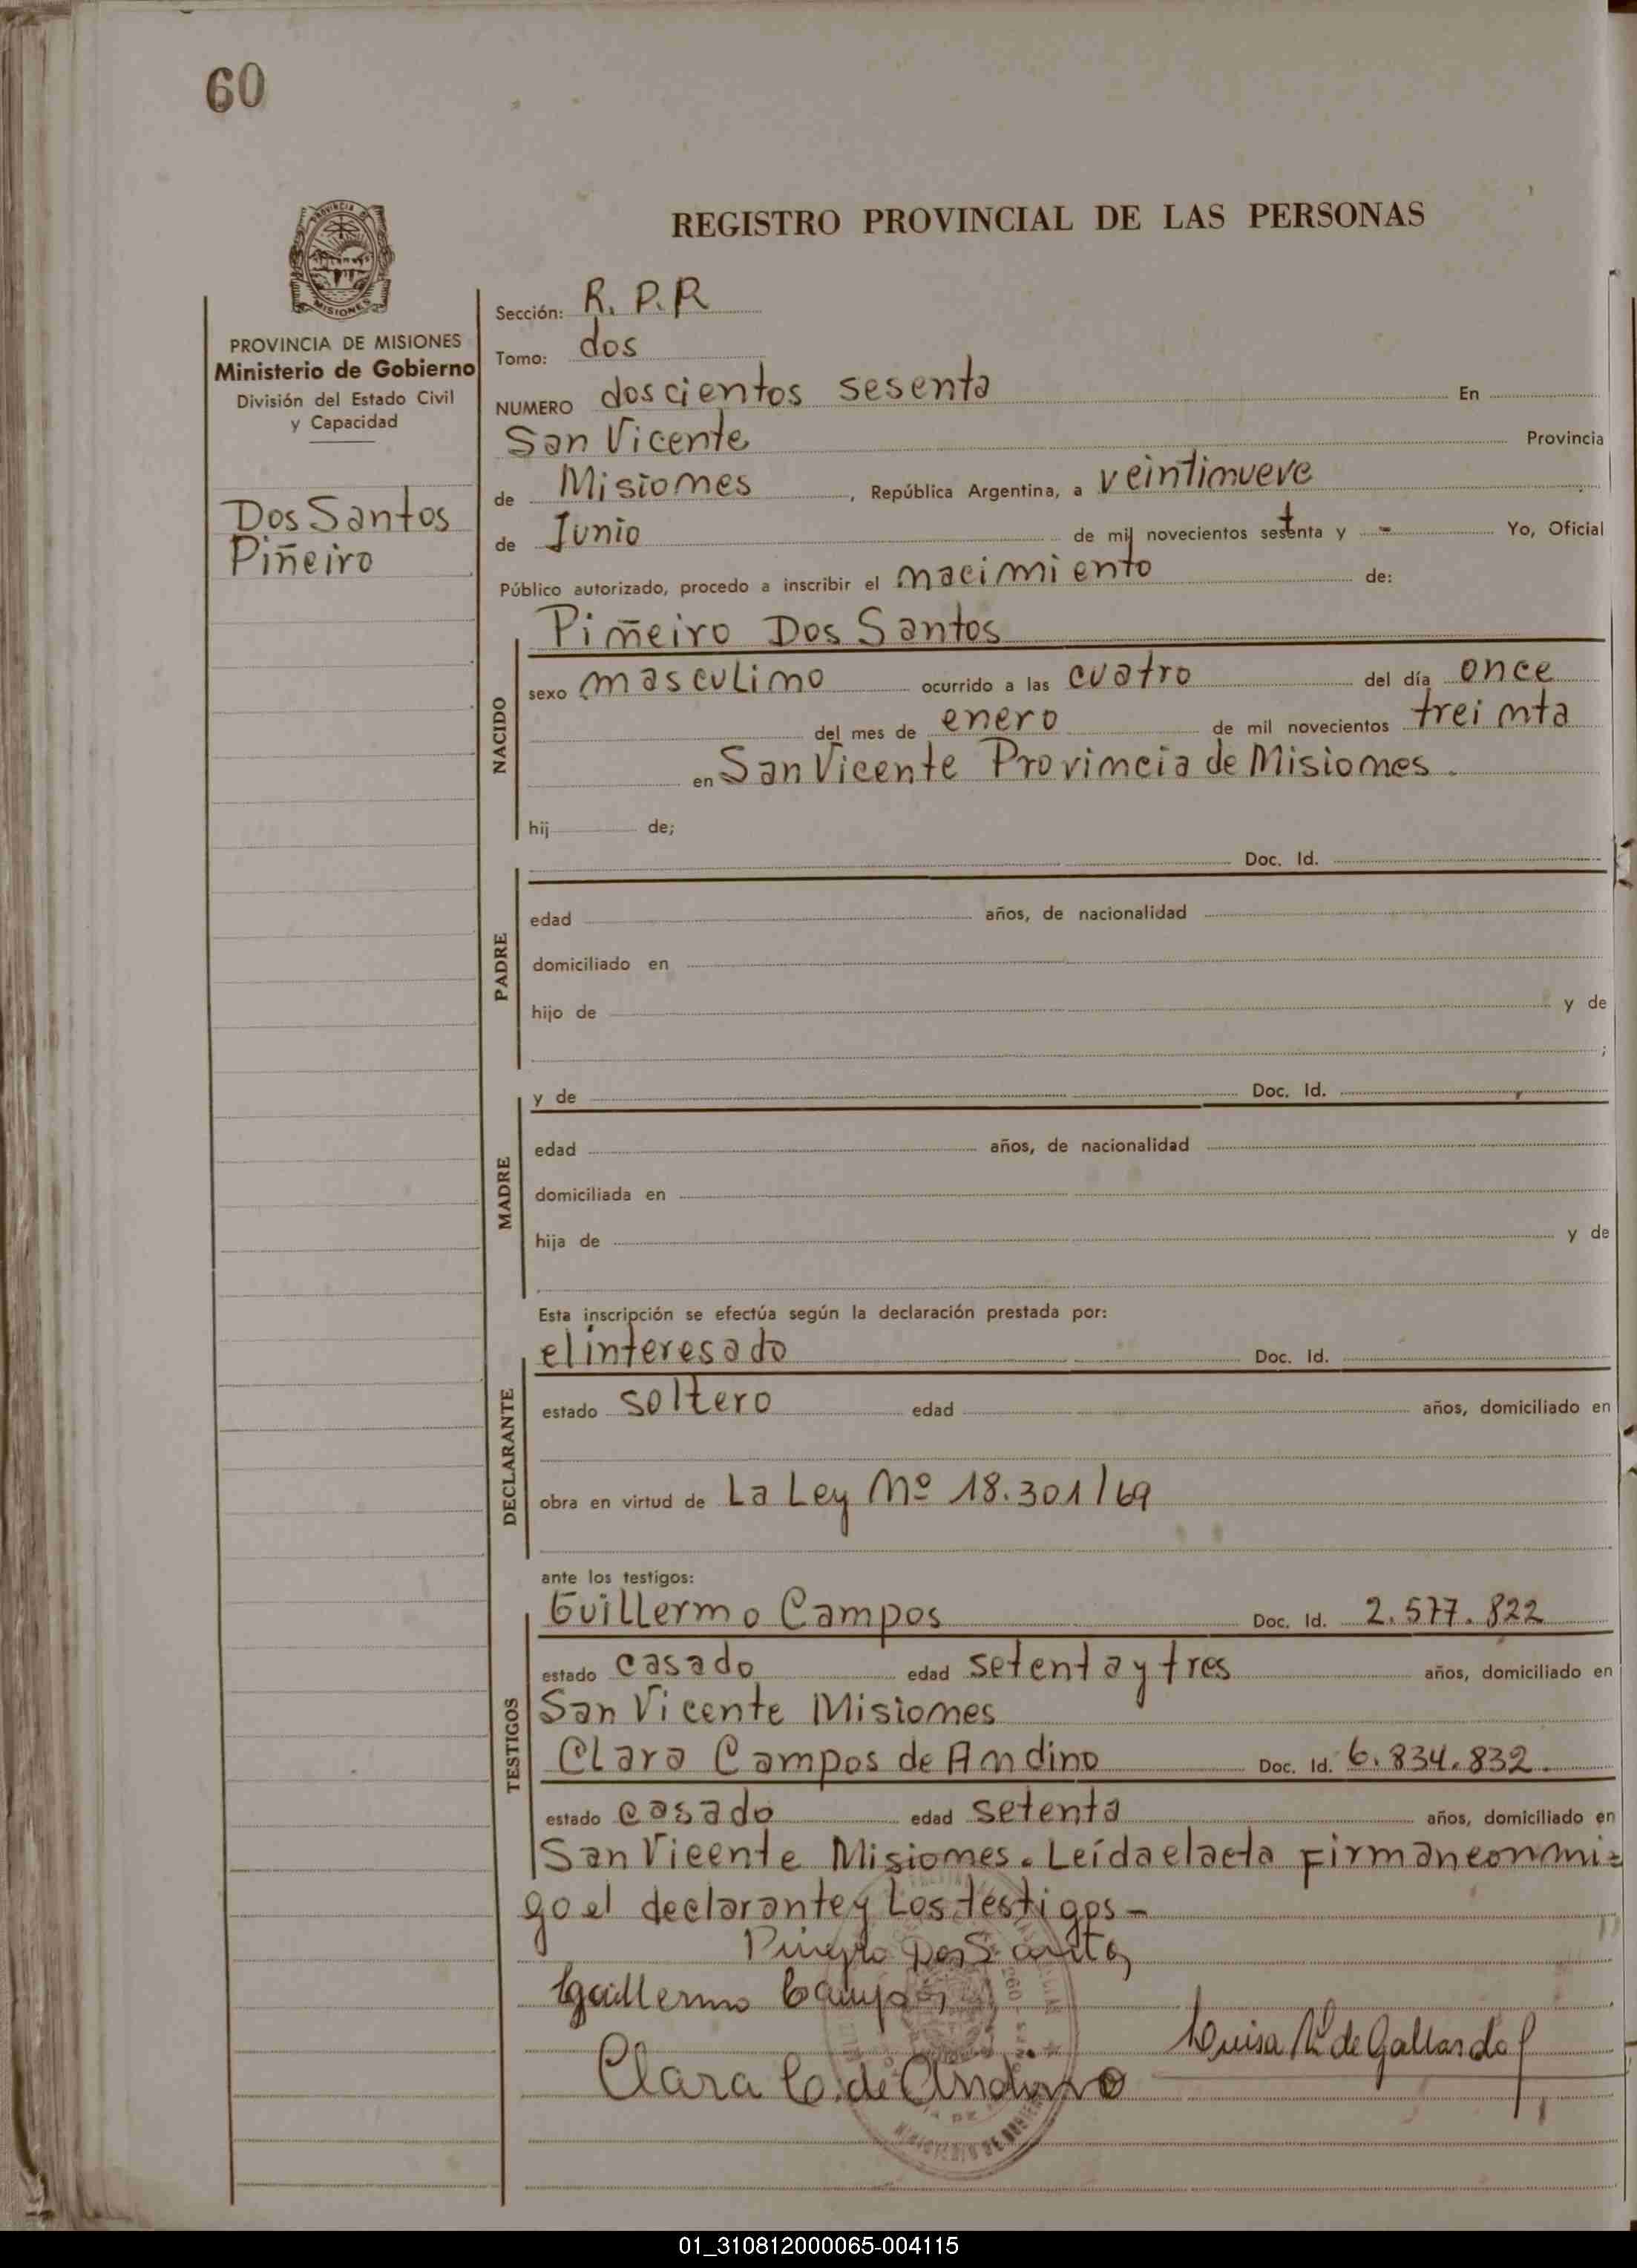 60
PROVINCIA DE
MISIONES
REGISTRO PROVINCIAL DE LAS PERSONAS
PROVINCIA DE MISIONES
Ministerio de Gobierno
División del Estado Civil
y Capacidad
Dos Santos
Piñeiro
Sección: R. P. R
Tomo: dos
NUMERO doscientos sesenta En
San Vicente Provincia
de Misiones, República Argentina, a veintinueve
de Junio de mil novecientos setenta y - Yo, Oficial
Público autorizado, procedo a inscribir el nacimiento de:
Piñeiro Dos Santos
NACIDO
sexo masculino ocurrido a las cuatro del día once
del mes de enero de mil novecientos treinta
en San Vicente Provincia de Misiones.
hij de;
Doc. Id.
PADRE
edad años, de nacionalidad
domiciliado en
hijo de y de
;
y de Doc. Id.
MADRE
edad años, de nacionalidad
domiciliada en
hija de y de
Esta inscripción se efectúa según la declaración prestada por:
el interesado Doc. Id.
DECLARANTE
estado soltero edad años, domiciliado en
obra en virtud de La Ley Nº 18.301/69
ante los testigos:
Guillermo Campos Doc. Id. 2.577.822
TESTIGOS
estado casado edad setenta y tres años, domiciliado en
San Vicente Misiones
Clara Campos de Andino Doc. Id. 6.834.832.
estado casado edad setenta años, domiciliado en
San Vicente Misiones. Leída el acta firman conmi=
go el declarante y Los testigos -
Piñeyro Dos Santos
Guillermo Campos
Luisa M de Gallardo
Clara C. de Andino
01_310812000065-004115